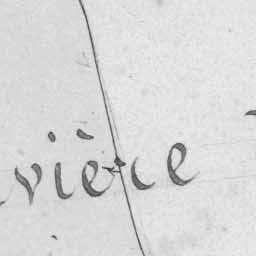 vière